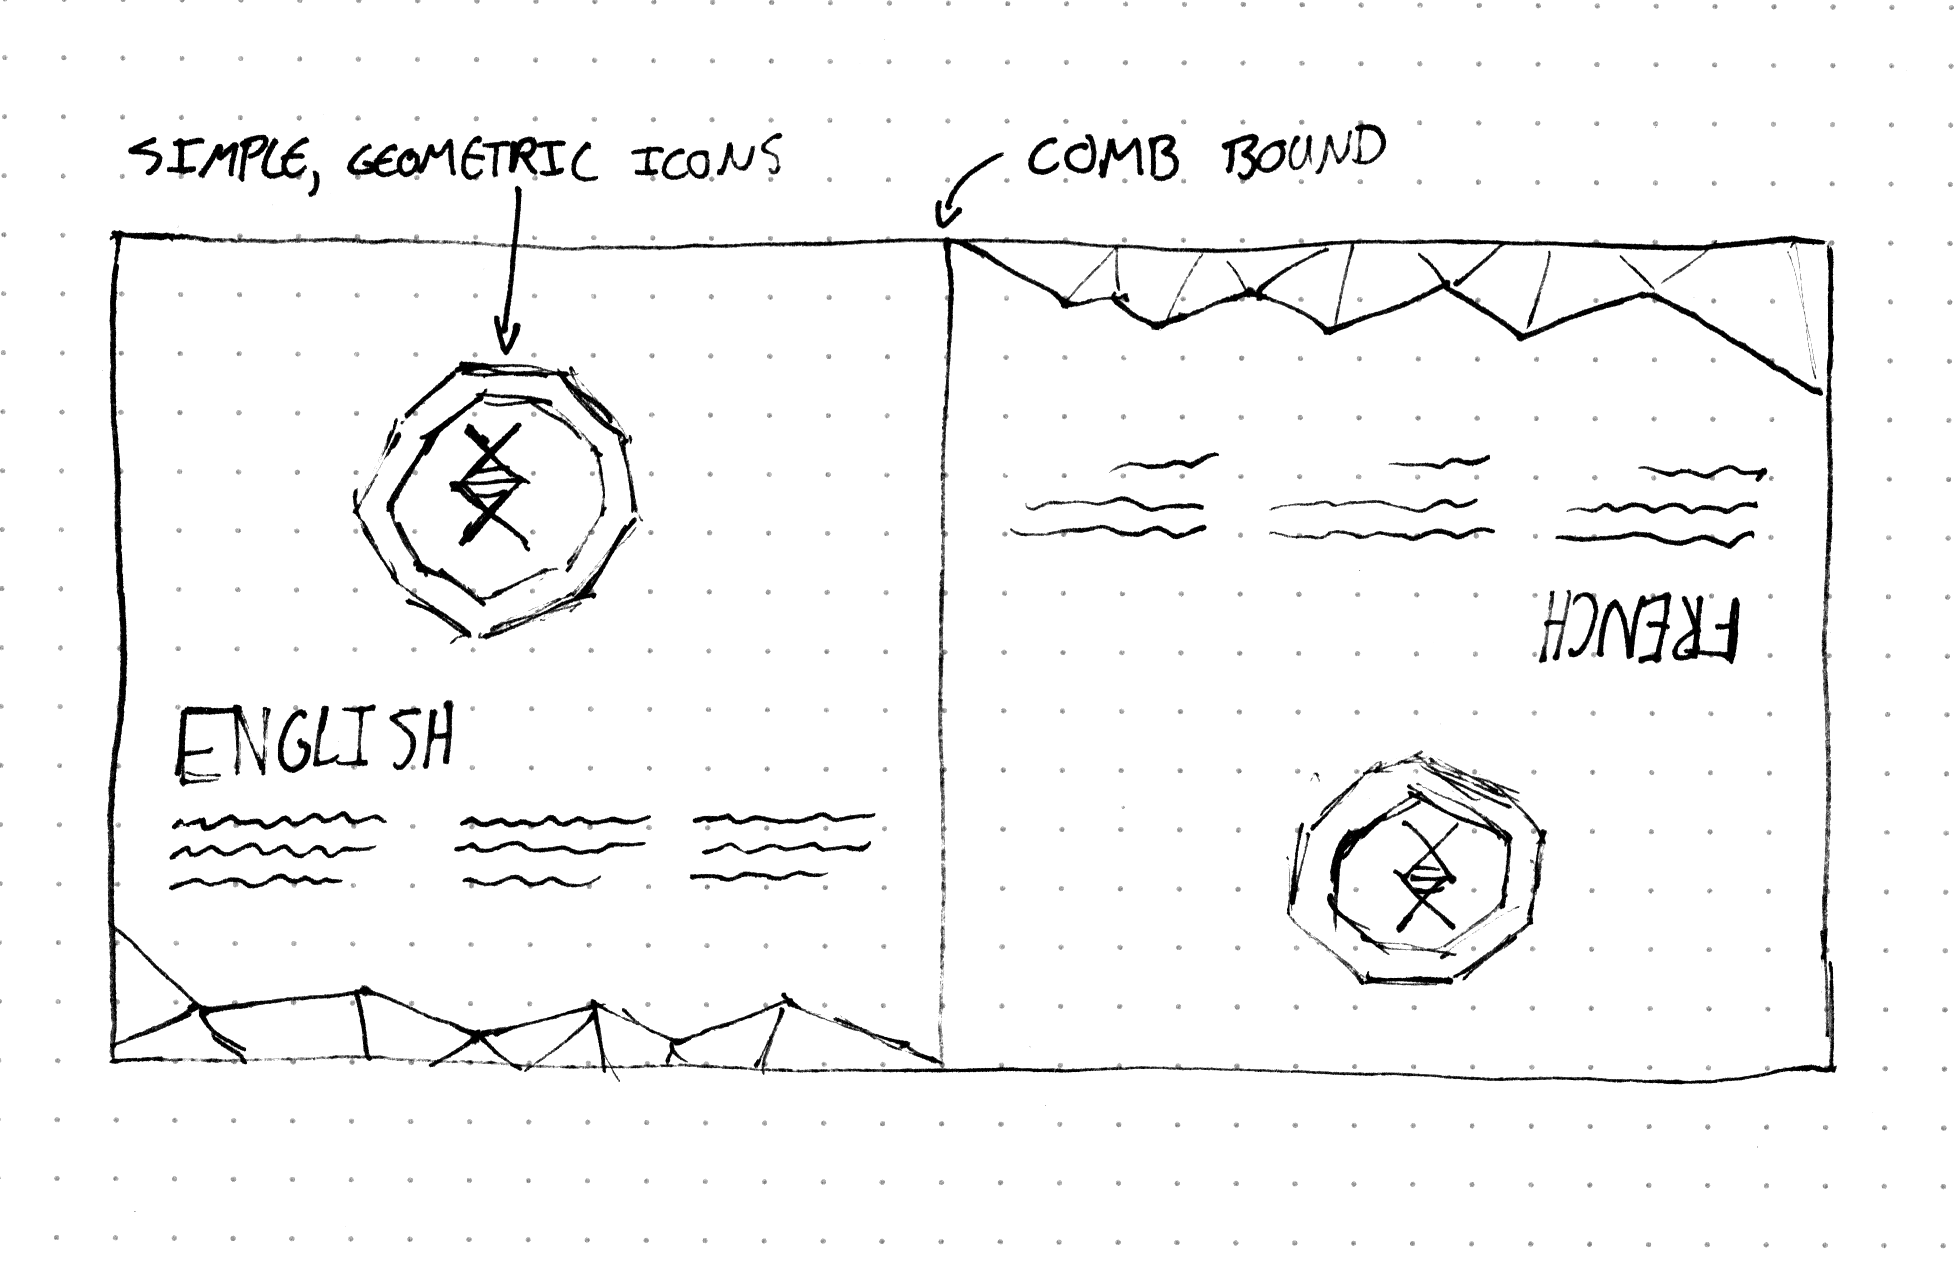 SIMPLE, GEOMETRIC ICONS
COMB BOUND
ENGLISH
FRENCH